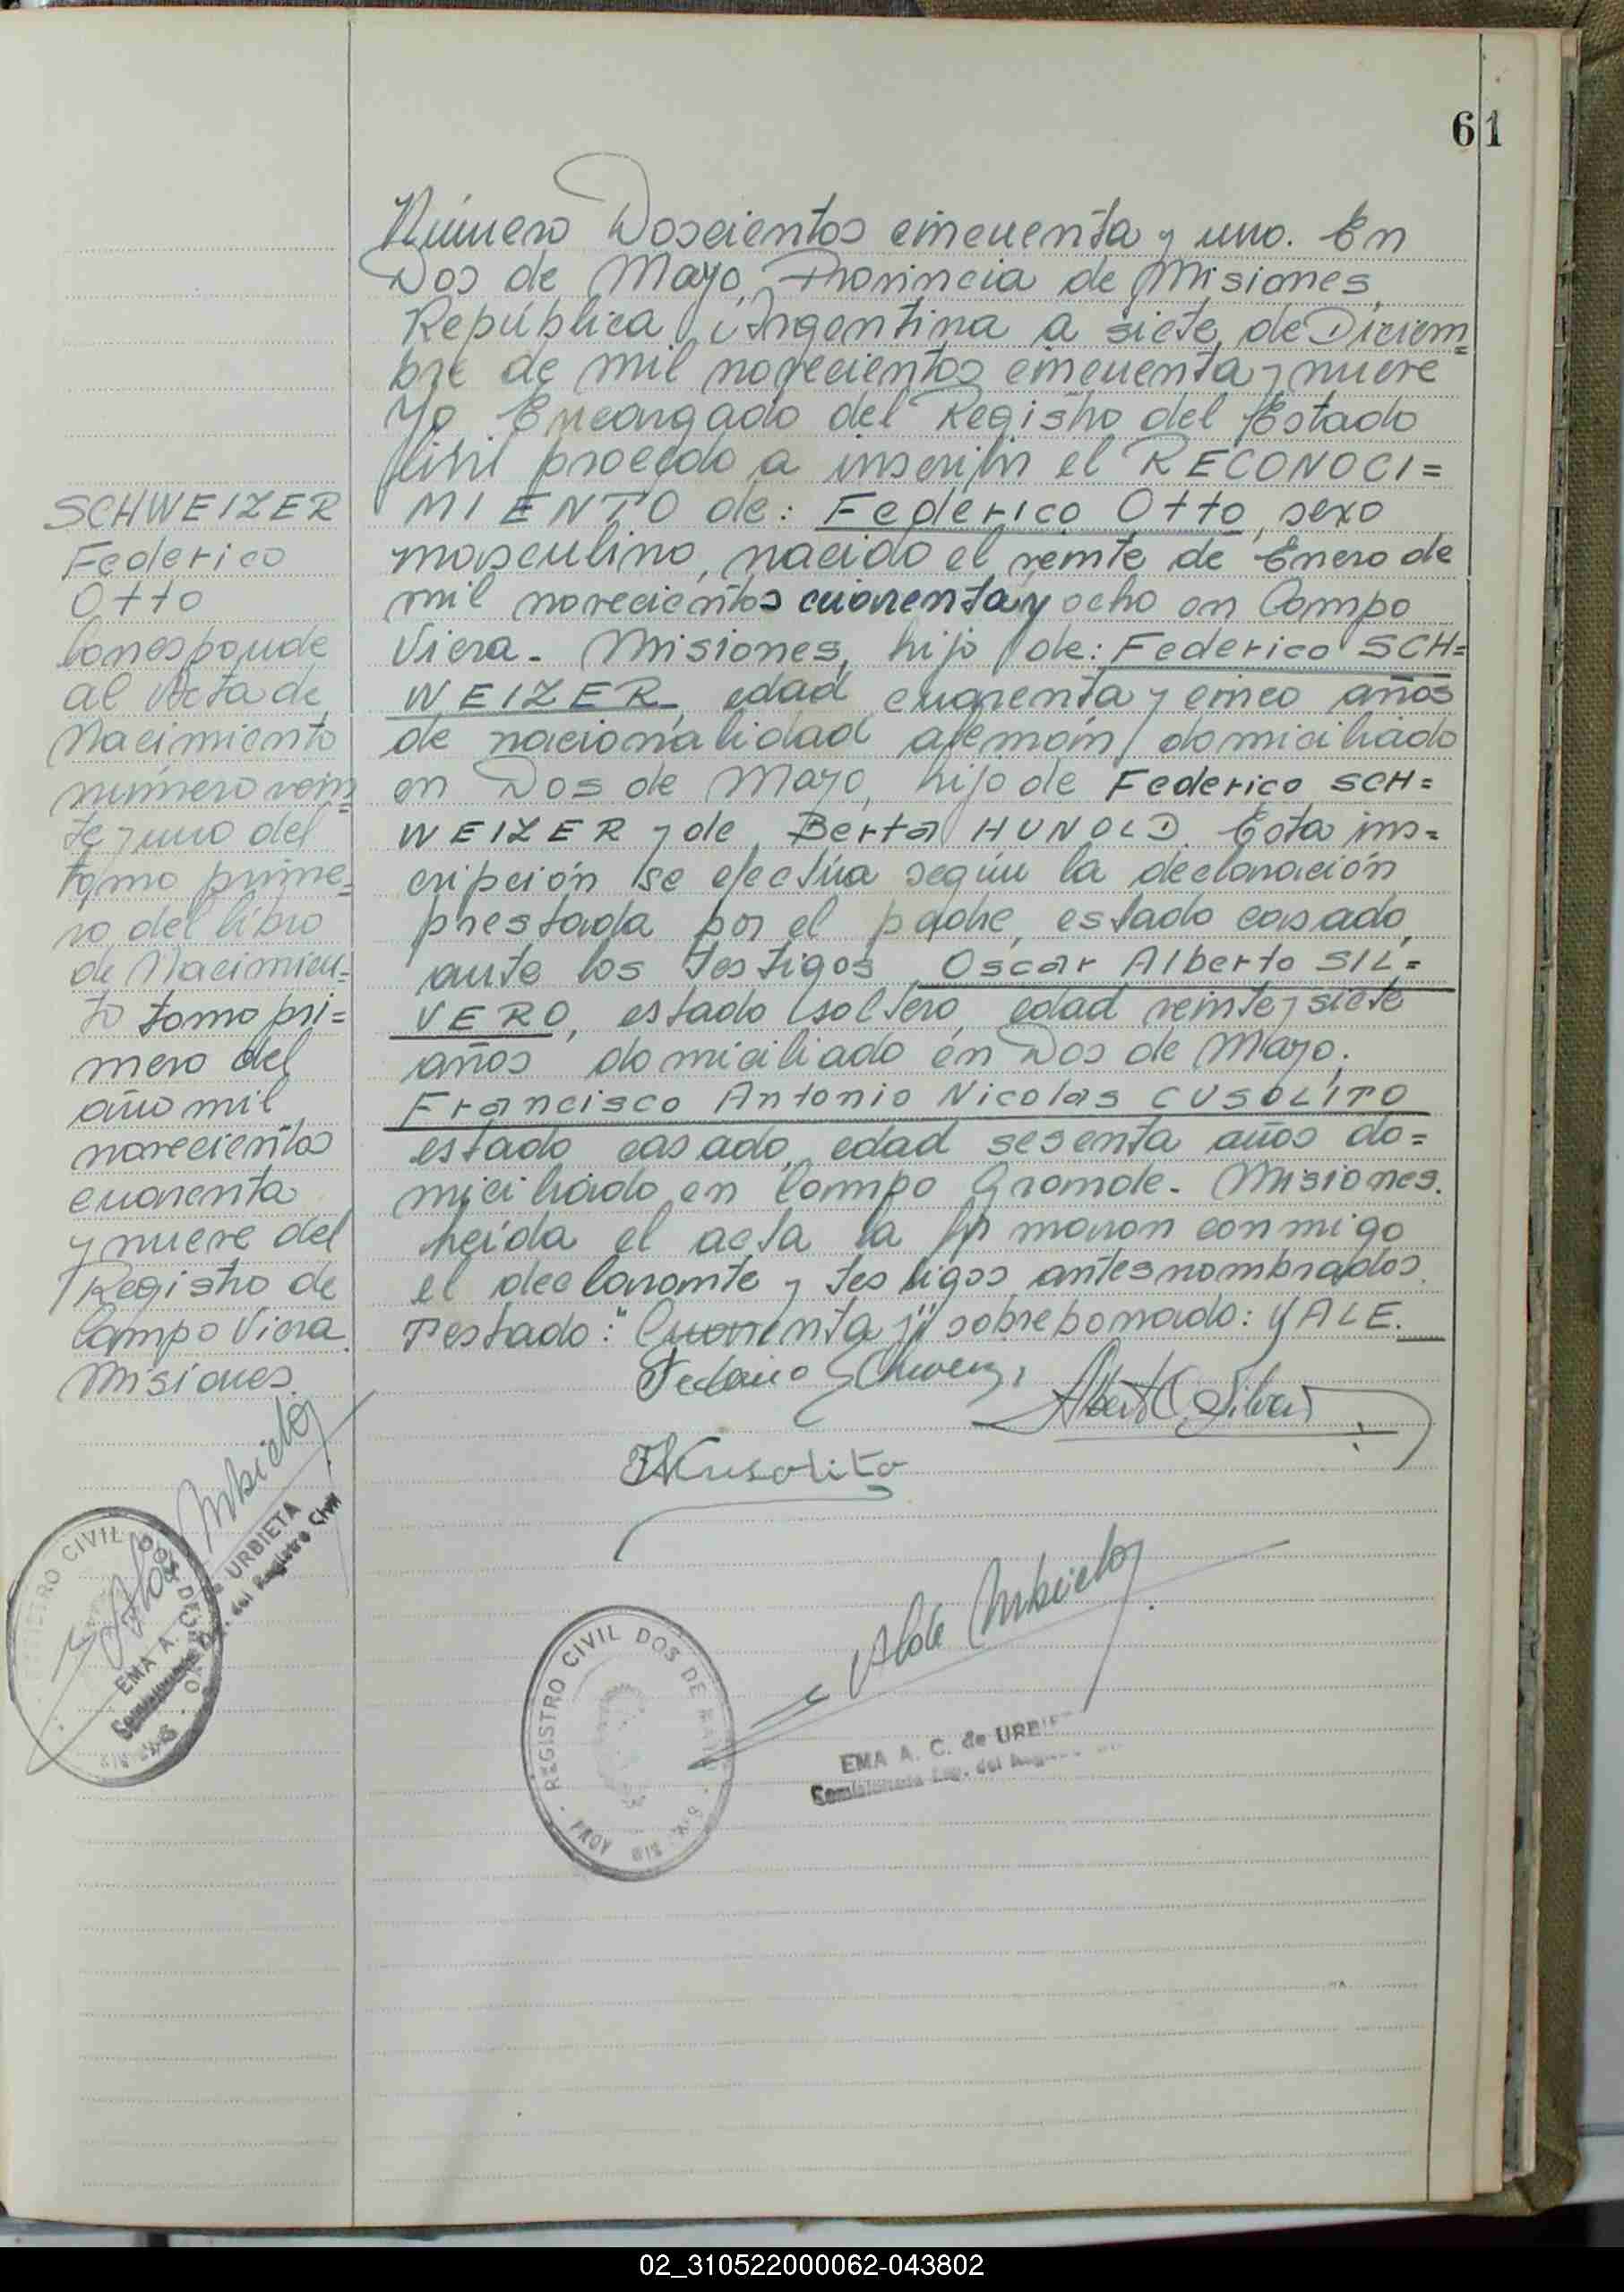 61
Número Doscientos cincuenta y uno. En
Dos de Mayo, Provincia de Misiones,
República Argentina a siete de Diciem=
bre de mil novecientos cincuenta y nueve
Yo Encargado del Registro del Estado
Civil procedo a inscribir el RECONOCI=
MIENTO de: Federico Otto, sexo
masculino, nacido el veinte de Enero de
mil novecientos cuarenta y ocho en Campo
Viera - Misiones, hijo de: Federico SCH=
WEIZER, edad cuarenta y cinco años
de nacionalidad alemán, domiciliado
en Dos de Mayo, hijo de Federico SCH=
WEIZER y de Berta HUNOLD. Esta ins=
cripción se efectúa según la declaración
prestada por el padre, estado casado,
ante los testigos Oscar Alberto SIL=
VERO, estado soltero, edad veinte y siete
años, domiciliado en Dos de Mayo;
Francisco Antonio Nicolas CUSOLITO
estado casado, edad sesenta años do=
miciliado en Campo Grande - Misiones.
Leída el acta la firmaron conmigo
el declarante y testigos antes nombrados.
Testado: "Cuarenta y" sobreborrado: VALE.
SCHWEIZER
Federico
Otto
Corresponde
al Acta de
Nacimiento
número vein=
te y uno del
tomo prime=
ro del libro
de Nacimien=
to tomo pri=
mero del
año mil
novecientos
cuarenta
y nueve del
Registro de
Campo Viera
Misiones.
REGISTRO CIVIL DOS DE MAYO
EMA A. C. de URBIETA
del Registro Civil
Kusolito
REGISTRO CIVIL DOS DE MAYO
PROV. MIS
EMA A. C. de URBIETA
02_310522000062-043802